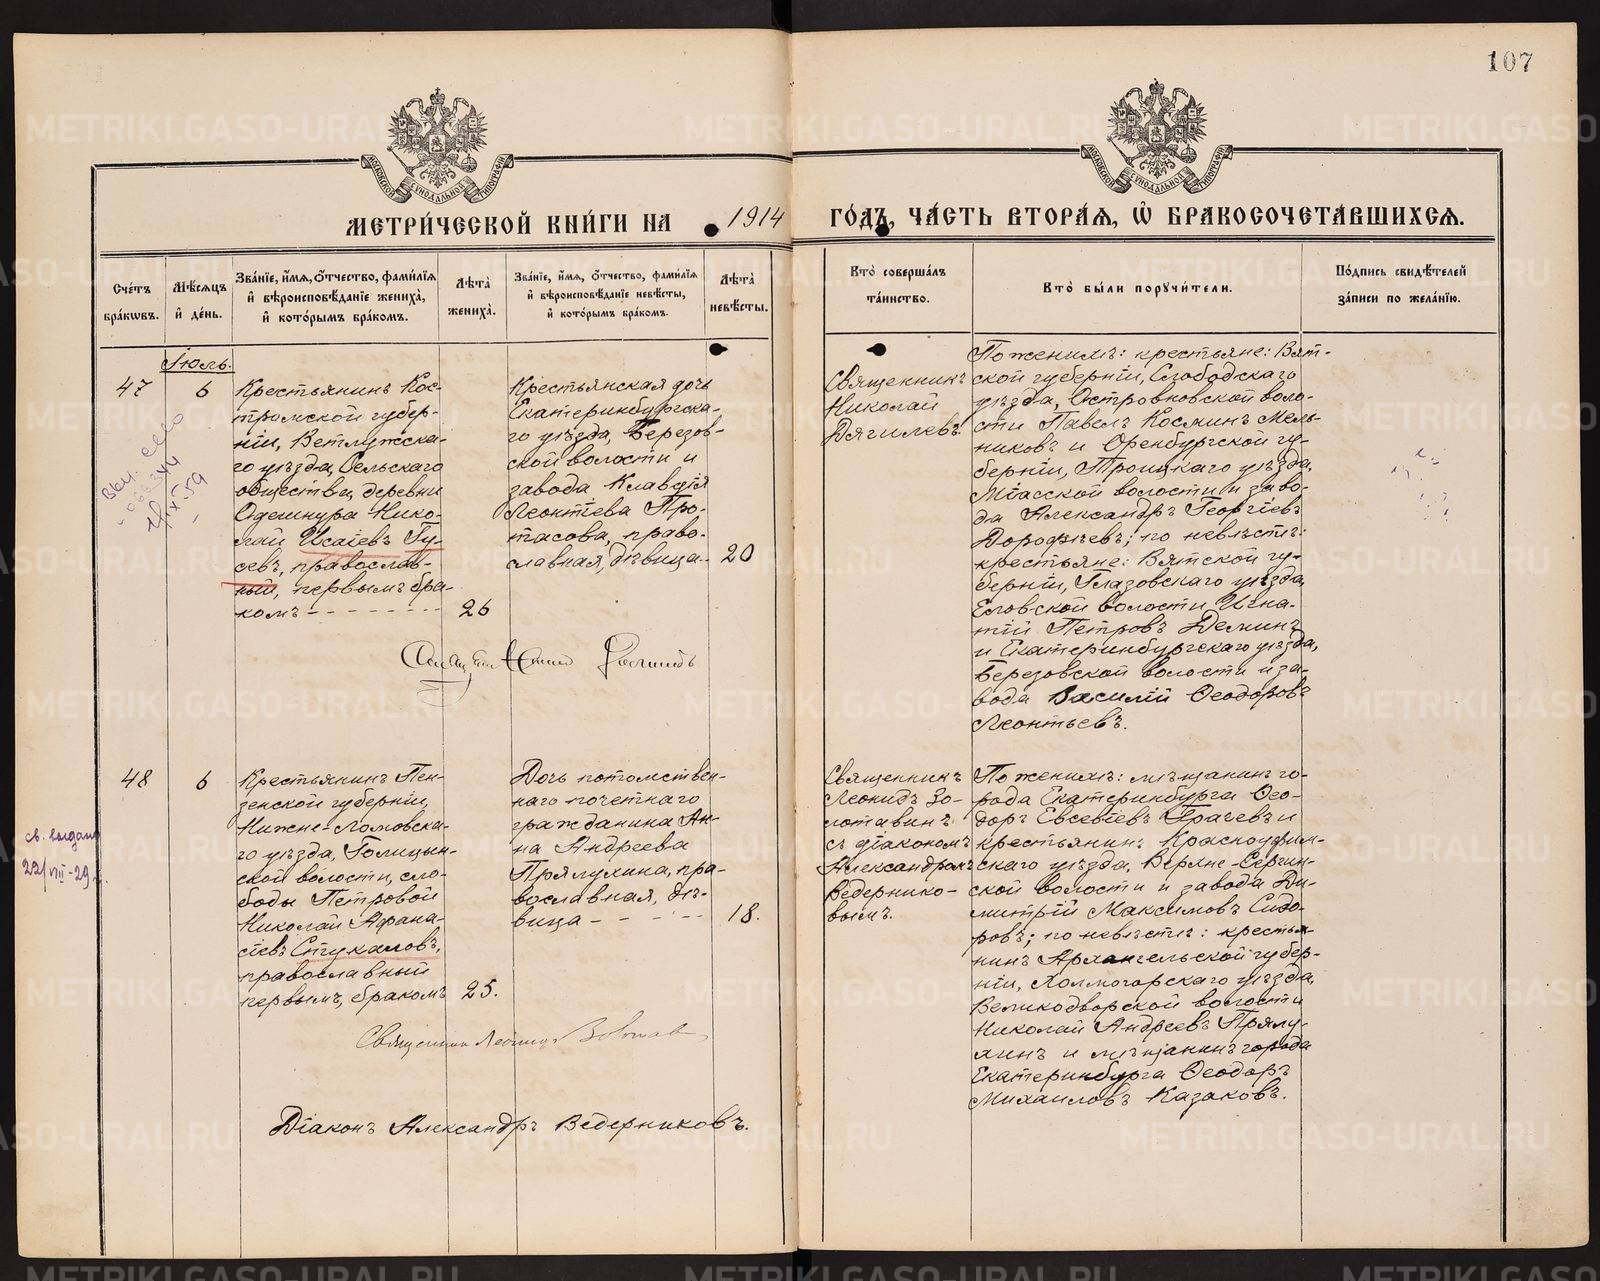 107
МЕТРИ́ЧЕСКОЙ КНИ́ГИ НА 1914 ГО́ДЪ, ЧА́СТЬ ВТОРА́Я, Ѡ҆ БРАКОСОЧЕТА́ВШИХСЯ.
Сче́тъ бра́кѡвъ.
Мѣ́сяцъ и҆ де́нь.
Зва́нїе, и҆́мя, ѻ҆́тчество, фами́лїя
и҆ вѣроисповѣ́данїе жениха̀,
и҆ кото́рымъ бра́комъ.
Лѣ́та̀ жениха̀.
Зва́нїе, и҆́мя, ѻ҆́тчество, фами́лїя
и҆ вѣроисповѣ́данїе невѣ́сты,
и҆ кото́рымъ бра́комъ.
Лѣ́та̀ невѣ́сты.
Кто̀ соверша́лъ
та́инство.
Кто̀ бы́ли порꙋчи́тели.
По́дпись свидѣ́телей
за́писи по жела́нїю.
Іюль.
47
6
Крестьянинъ Кос-
тромской губер-
ніи, Ветлужска-
го уѣзда, Сельскаго
общества, деревни
Одешнура Нико-
лай Исаіевъ Гу-
севъ, православ-
ный, первымъ бра-
комъ - - - - - - - -
26
Крестьянская дочь
Екатеринбургска-
го уѣзда, Березов-
ской волости и
завода Клавдія
Леонтіева Про-
тасова, право-
славная, дѣвица..
20
Священникъ
Николай
Дягилевъ.
По женихѣ: крестьяне: Вят-
ской губерніи, Слободскаго
уѣзда, Островновской воло-
сти Павелъ Косминъ Мель-
никовъ и Оренбургской гу-
берніи, Троицкаго уѣзда,
Міасской волости и заво-
да Александръ Георгіевъ
Дорофѣевъ; по невѣстѣ:
крестьяне: Вятской гу-
берніи, Глазовскаго уѣзда,
Еловской волости Игна-
тій Петровъ Деминъ
и Екатеринбургскаго уѣзда,
Березовской волости и за-
вода Василій Ѳеодоровъ
Леонтьевъ.
48
6
Крестьянинъ Пен-
зенской губерніи,
Нижне-Ломовска-
го уѣзда, Голицын-
ской волости, сло-
боды Петровой
Николай Афана-
сіевъ Стукаловъ,
православный
первымъ, бракомъ
25.
Дочь потомствен-
наго почетнаго
гражданина Ан-
на Андреева
Прялухина, пра-
вославная, дѣ-
вица - - - - - -
18.
Священникъ
Леонидъ Зо-
лотавинъ
съ діакономъ
Александромъ
Ведернико-
вымъ.
По женихѣ: мѣщанинъ го-
рода Екатеринбурга Ѳео-
доръ Евсевіевъ Грачевъ и
крестьянинъ Красноуфим-
скаго уѣзда, Верхне-Сергин-
ской волости и завода Ди-
митрій Максимовъ Сидо-
ровъ; по невѣстѣ: крестья-
нинъ Архангельской губер-
ніи, Холмогорскаго уѣзда,
Великодворской волости
Николай Андреевъ Прялу-
хинъ и мѣщанинъ города
Екатеринбурга Ѳеодоръ
Михаиловъ Казаковъ.
22/VIII-29
Священникъ Леонидъ
Діаконъ Александръ Ведерниковъ.
МОСКОВСКОЙ СѴНОДАЛЬНОЙ ТИПОГРАФІИ
МОСКОВСКОЙ СѴНОДАЛЬНОЙ ТИПОГРАФІИ
METRIKI.GASO-URAL.RU